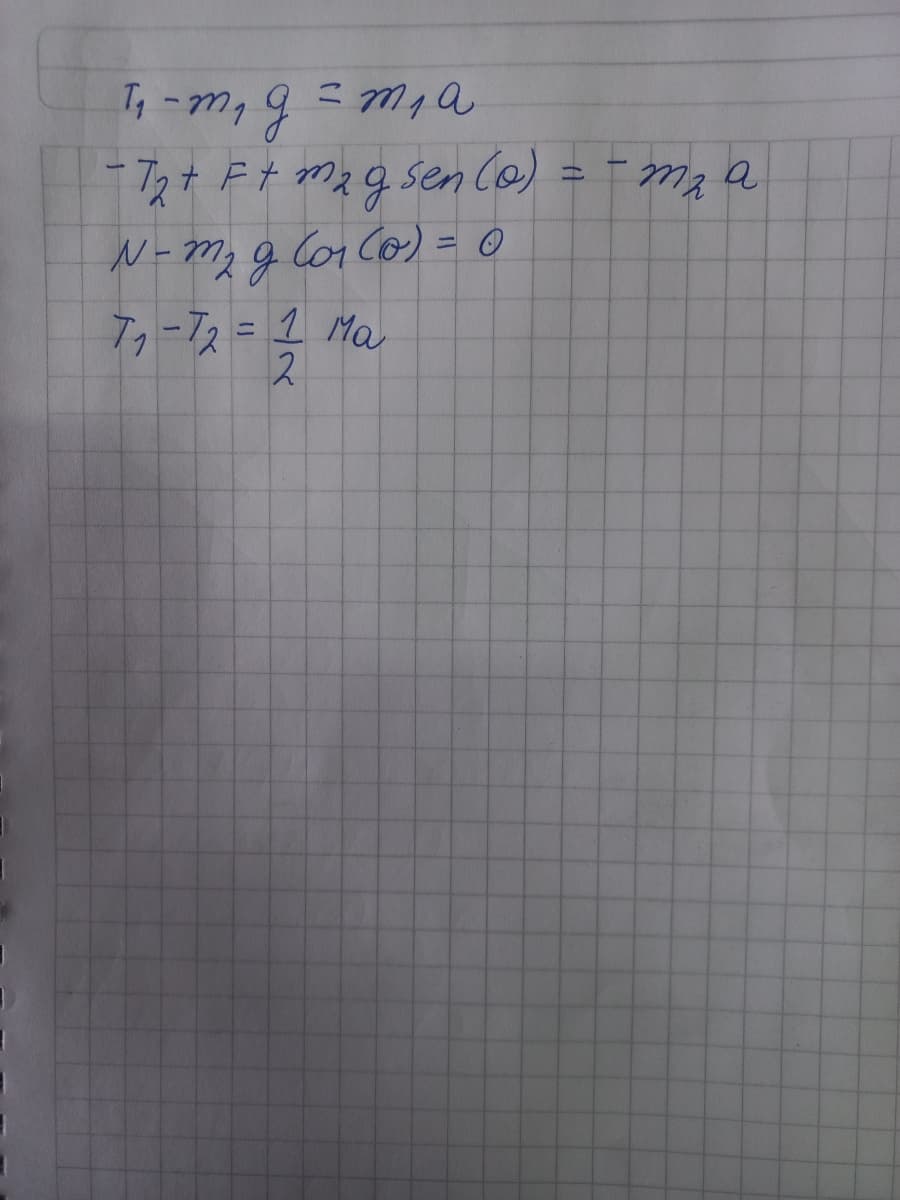 T₁ - m₁ g = m₁ a
- T₂ + F + m₂ g sen (θ) = - m₂ a
N - m₂ g Cos (θ) = 0
T₁ - T₂ = 1/2 Ma